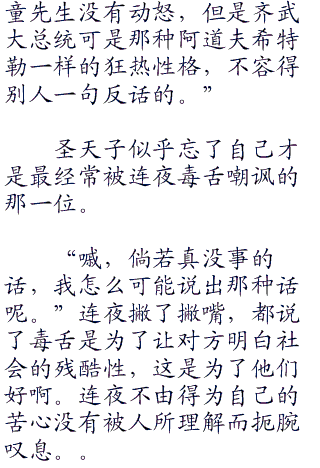 童先生没有动怒，但是齐武
大总统可是那种阿道夫希特
勒一样的狂热性格，不容得
别人一句反话的。”
圣天子似乎忘了自己才
是最经常被连夜毒舌嘲讽的
那一位。
“嘁，倘若真没事的
话，我怎么可能说出那种话
呢。”连夜撇了撇嘴，都说
了毒舌是为了让对方明白社
会的残酷性，这是为了他们
好啊。连夜不由得为自己的
苦心没有被人所理解而扼腕
叹息。。